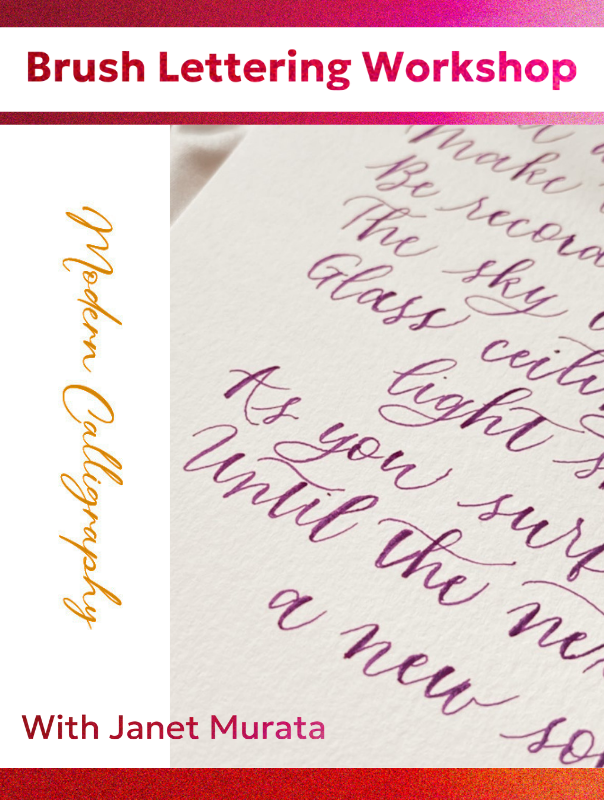 Brush Lettering Workshop
Modern Calligraphy
Make
Be
The sky
Glass
light
As you
Until the
a new
With Janet Murata